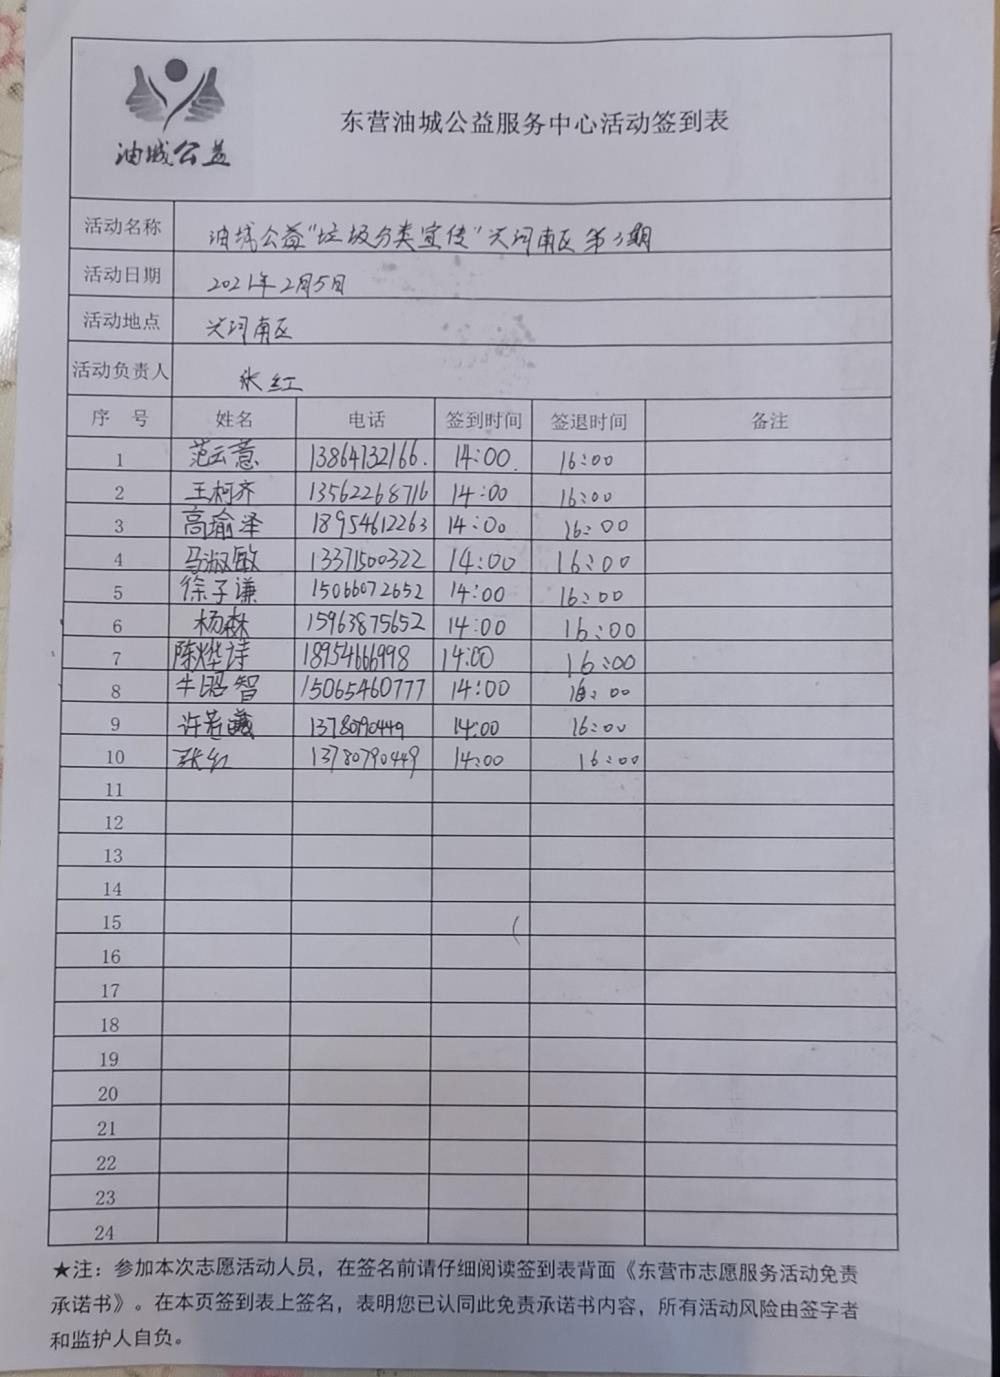 油城公益
东营油城公益服务中心活动签到表
活动名称 油城公益"垃圾分类宣传"兴河南区第3期
活动日期 2021年2月5日
活动地点 兴河南区
活动负责人 张红
序 号 姓名 电话 签到时间 签退时间 备注
1 范云薏 13864132166. 14:00. 16:00
2 王柯齐 13562268716 14:00 16:00
3 高瑜泽 18954612263 14:00 16:00
4 马淑敏 13371500322 14:00 16:00
5 徐子谦 15066072652 14:00 16:00
6 杨森 15963875652 14:00 16:00
7 陈烨诗 18954666998 14:00 16:00
8 牛昭智 15065460777 14:00 16:00
9 许 13780790449 14:00 16:00
10 张红 13780790449 14:00 16:00
11
12
13
14
15
16
17
18
19
20
21
22
23
24
★注：参加本次志愿活动人员，在签名前请仔细阅读签到表背面《东营市志愿服务活动免责
承诺书》。在本页签到表上签名，表明您已认同此免责承诺书内容，所有活动风险由签字者
和监护人自负。